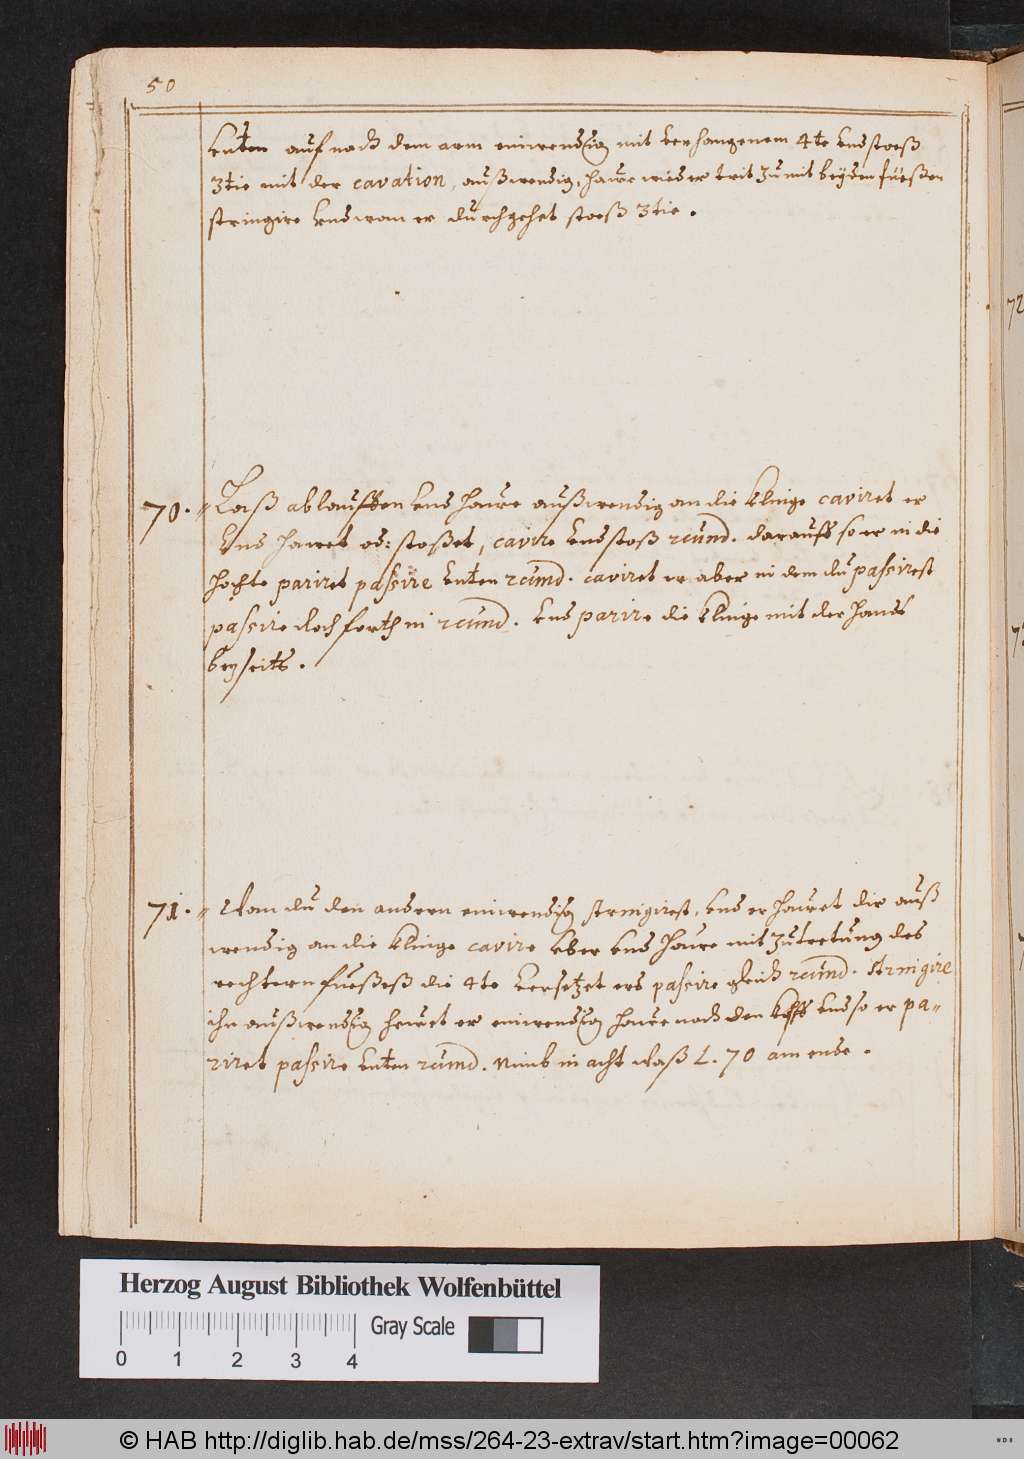 50
unten auf nach dem arm einwendig mit verhangenem 4te und stoeß
3tie mit der cavation, außwendig, hauwe wieder trit zu mit beyden füeßen
stringire und wan er durchgehet stoeß 3tie.
70. Laß ablauffen und hauwe außwendig an die klinge caviret er
und hauwet od: stoßet, cavire und stoß secund. darauff so er in die
höchte pariret passire unten secund. caviret er aber in dem du passirest
passire doch forth in secund. und parire die klinge mit der handt
beyseits.
71. Wan du den andern einwendig stringirest, und er hauwet dir auß
wendig an die klinge cavire über und hauwe mit zutretung des
rechtern fueßeß die 4te versetzet ers passire gleich secund. stringire
ihn außwendig hauwet er einwendig hauwe nach den kopff und so er pa-
riret passire unten secund. Nimb in acht waß L. 70 am ende.
72
Herzog August Bibliothek Wolfenbüttel
0 1 2 3 4
Gray Scale
© HAB http://diglib.hab.de/mss/264-23-extrav/start.htm?image=00062